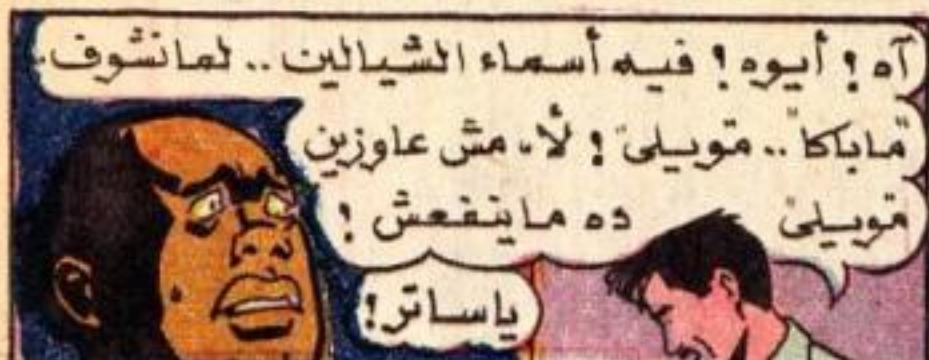 آه ؟ أيوه ؟ فيه أسماء الشيالين .. لما نشوف.
"ماباكا" .. "موبيلى" ! لأ، مش عاوزين
"موبيلى" ده ما ينفعش !
ياساتر !